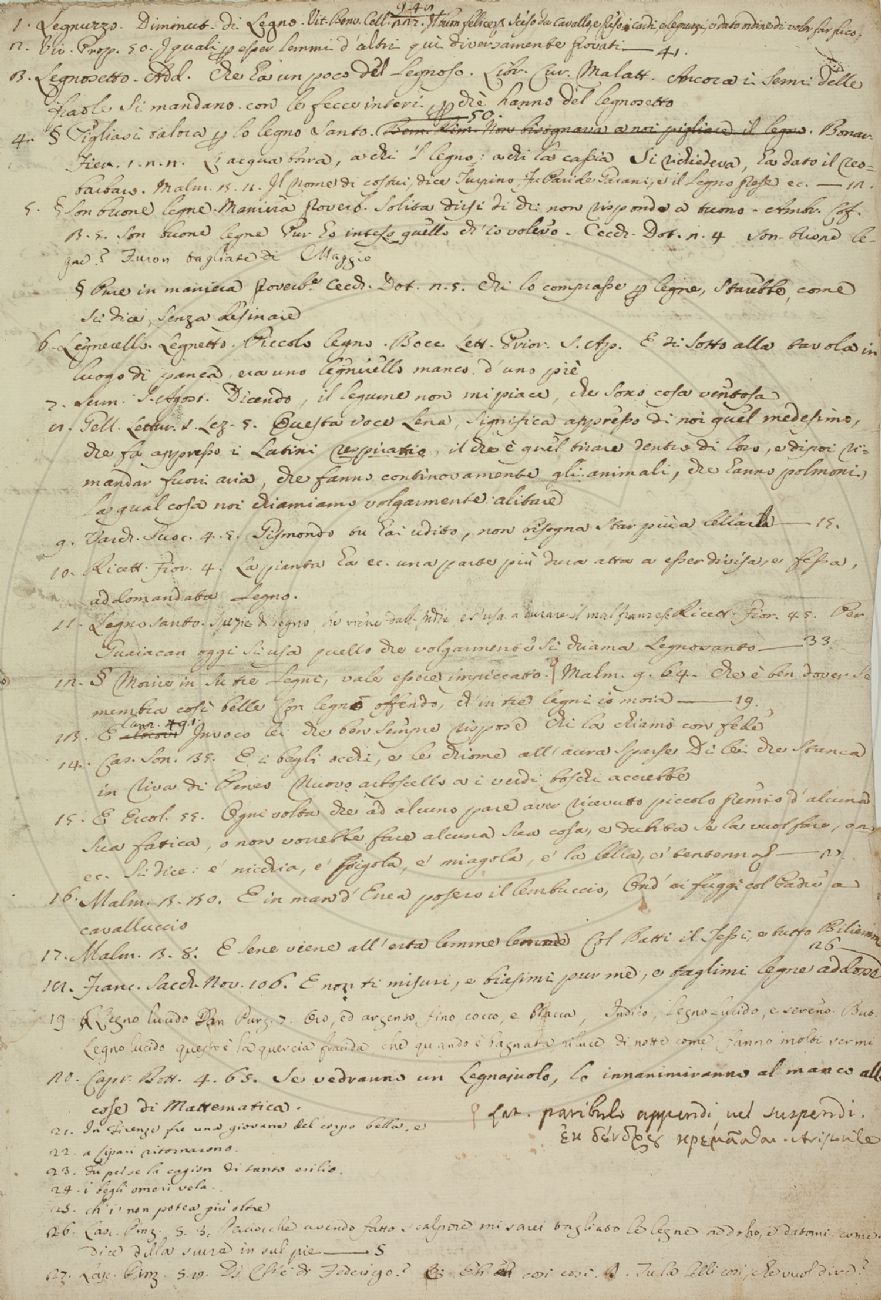 1. Legnuzzo. Diminut. di Legno. Vit. Benv. Cell.
2. Viv. Prop. 50. I quali p esser lemmi d'altri qui diversamente provati — 4.
3. Legnosetto. Add. Che ha un poco del Legnoso. Libr. Cur. Malatt. Ancora i semi delle
fraole si mandano con le fecce interi, p chè hanno del legnosetto
4. § Pigliasi talora p lo legno santo. Bern. Rim. Non bisognava a noi pigliare il legno. Bonar.
Fier. 1. a chi 'l legno; a chi la cassia Si richiedeva, ha dato il reo-
barbaro. Malm. Il nome di costui, dice Turpino, Fu e il legno prese ec. — 12.
5. § Son buone legne. Maniera proverb. solita dirsi di chi non risponde a tuono. Ambr. Cof.
3. 5. Son buone legne Pur ho inteso quello ch'io volevo. Cecch. Dot. n. 4 Son buone le-
gne? Furon tagliate di Maggio
§ Pure in maniera proverb. Cecch. Dot. n. 5. chi lo comprasse p legne, starebbe, come
si dice, senza desinare
6. Legnerello. Legnetto. Piccolo legno. Bocc. Lett. Prior. S. Ap. E di sotto alla tavola in
luogo di panca, era uno legnerello manco d'uno piè
7. S. Agost. Dicendo, il legume non mi piace, che sono cosa ventosa
8. Gell. Lettur. 1. Lez. 5. Questa voce Lena, significa appresso di noi quel medesimo,
che fa appresso i Latini respiratio, il che è quel tirare dentro di loro, e dipoi ri-
mandar fuori aria, che fanno continovamente gli animali, che hanno polmoni,
la qual cosa noi chiamiamo volgarmente alitare
9. Varch. Suoc. 4. 5. Gismondo tu hai udito, non bisogna star più a lellarla — 15.
10. Ricett. Fior. 4. La pianta ha ec. una parte più dura atta a esser divisa, e fessa,
addomandata Legno.
11. Legno santo. Spezie di legno, che viene dall'Indie, e s'usa a curare il mal franzese. Ricett. Fior. 45. Per
Guaiacan oggi si usa quello che volgarmente si chiama Legnosanto — 33
12. § Morire in su tre Legni, vale essere impiccato. Malm. 9. 64. che è ben dover, se
membra così belle Con legno offendo, ch'in tre legni io moia — 19.
13. E Invoco lei che ben sempre rispose Chi la chiamò con fede
14. Car. Son. 35. E i begli occhi, e le chiome all'aura sparse Di lei che stanca
in riva di Peneo Nuovo arboscello a i verdi boschi accrebbe
15. E Ercol. 55. Ogni volta che ad alcuno pare aver ricevuto piccolo premio d'alcuna
sua fatica, o non vorrebbe fare alcuna sua cosa, e dubita se la vuol fare, o no,
ec. Si dice: e' nicchia, e' pigola, e' miagola, e' la lella, e' tentenna —
16. Malm. 3. 30. E in man d'Enea posero il lembuccio, Ond' ei fuggì col Padre a
cavalluccio
17. Malm. 3. 8. E sene viene all'erta lemme lemme Col Batti il Tessi, e tutto Biliemme
18. Franc. Sacch. Nov. 106. E non ti misuri, e biasimi pur me, e taglimi legne addosso
19. § Legno lucido Dan. Purg. 7. Oro, ed argento fino cocco, e biacca, Indico, Legno lucido, e sereno. But.
Legno lucido questo è la quercia fracida che quando è bagnata riluce di notte come fanno molti vermi
20. Capr. Bott. 4. 65. Se vedranno un Legnajuolo, lo innanimiranno al manco alle
cose di Mattematica.
Lat. patibulo appendi vel suspendi.
ἐκ Aristotile
21. In Firenze fu una giovane del corpo bella, e
22. a Lipari ritornarono.
23. Tu pei se la cagion di tanto esilio.
24. i begli omeri vela.
25. ch'i' non potea più oltre
26. Lasc. Pinz. 5. 3. mi sarei tagliato le legne addosso, e datomi, come
dice della scure in sul piè — 5
27. Lasc. Pinz. 5. Di Federigo? così così. che vuol dire?